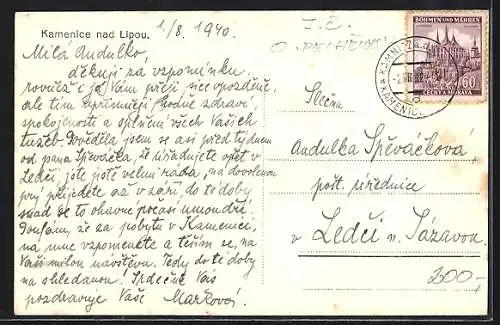 Kamenice nad Lipou.
1/8. 1940.
Milá Andulko,
děkuji za vzpomínku,
rovněž i já Vám přeji sice opožděně,
ale tím upřímněji hodně zdraví,
spokojenosti a splnění všech Vašich
tužeb. Dověděla jsem se asi před týdnem
od pana Spěváčka, že úřadujete opět v
Ledči, jste jistě velmi ráda, na dovolenou
prý přijedete až v září, do té doby
snad se to ohavné počasí umoudří.
Doufám, že za pobytu v Kamenici,
na mne vzpomenete a těším se, na
Vaši milou návštěvu. Tedy do té doby
na shledanou. Srdečně Vás
pozdravuje Vaše Marková.
BÖHMEN UND MÄHREN
ČECHY A MORAVA
60
KAMENICE
Slečna
Andulka Spěváčková,
pošt. úřednice
v Ledči n. Sázavou.
200,-